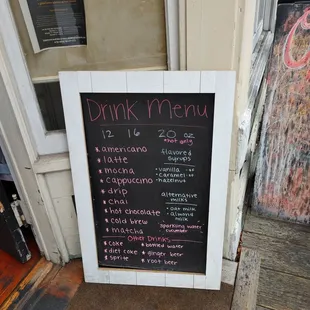 Drink Menu
12 16 20 oz
*hot only
* americano
* latte
* mocha
* cappuccino
* drip
* chai
* hot chocolate
* cold brew
* matcha
flavored syrups
- vanilla
- caramel
- hazelnut
alternative milks
- oat milk
- almond milk
Sparkling water
cucumber
Other Drinks
* coke
* diet coke
* sprite
* bottled water
* ginger beer
* root beer